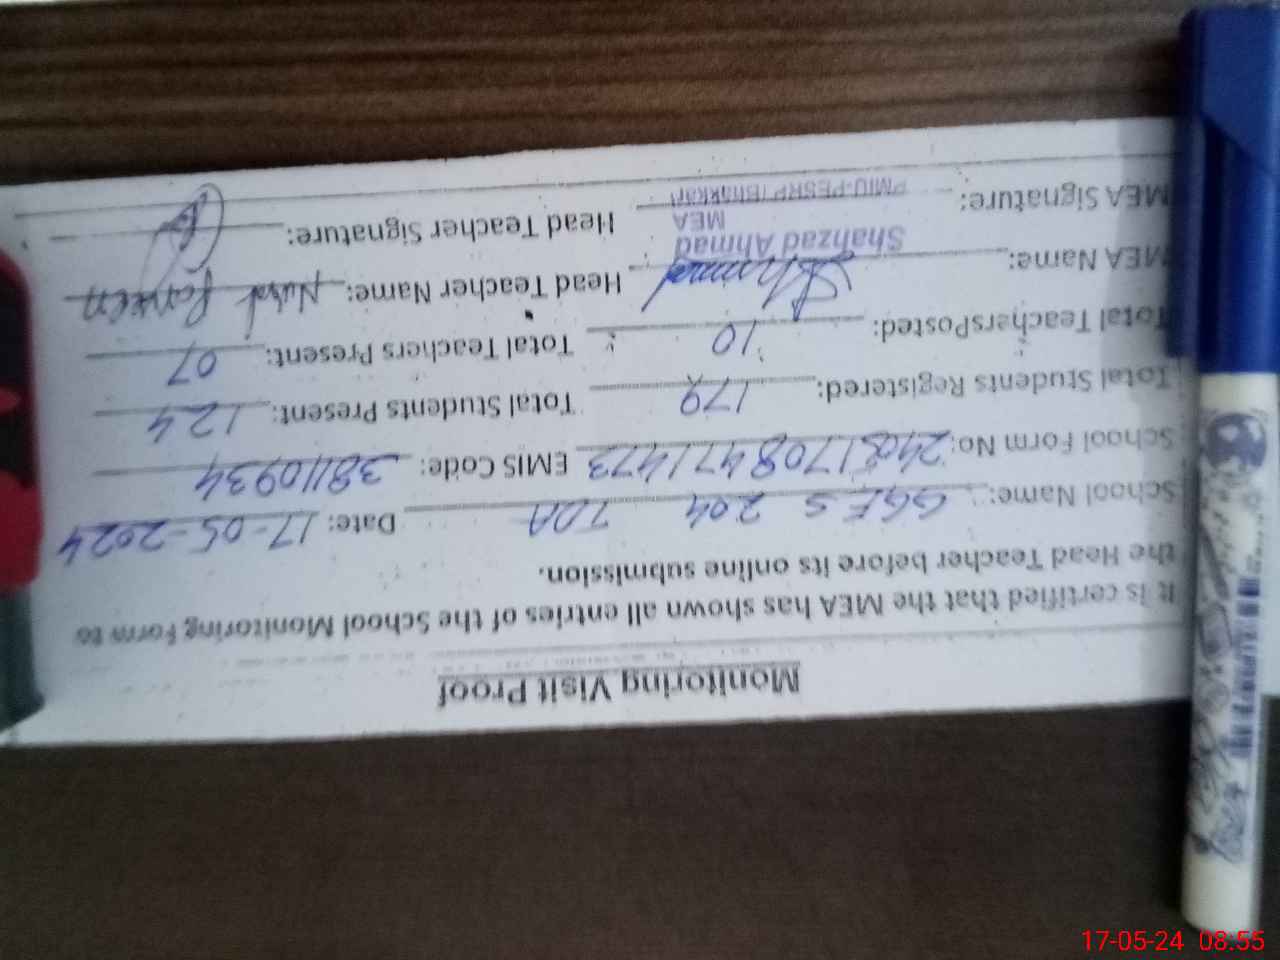 Monitoring Visit Proof
It is certified that the MEA has shown all entries of the School Monitoring Form to
the Head Teacher before its online submission.
School Name: GGES 204 TDA Date: 17-05-2024
School Form No: 471473 EMIS Code: 38110934
Total Students Registered: 179 Total Students Present: 124
Total TeachersPosted: 10 Total Teachers Present: 07
MEA Name: Head Teacher Name: Parveen
Shahzad Ahmad
MEA
PMIU-PESRP (Bhakkar)
MEA Signature: Head Teacher Signature:
17-05-24 08:55